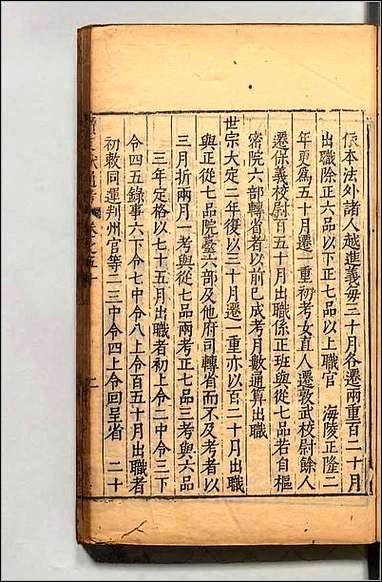 依本法外諸人越進義每三十月各遷兩重百二十月
出職除正六品以下正七品以上職官　海陵正隆二
年更爲五十月遷一重初考女直人遷敦武校尉餘人
遷保義校尉百五十月出職係正班與從七品若自樞
密院六部轉省者以前已成考月數通算出職
世宗大定二年復以三十月遷一重亦以百二十月出職
與正從七品院臺六部及他府司轉省而不及考者以
三月折兩月一考與從七品兩考正七品三考與六品
三年定格以七十五月出職者初上令二中令三下
令四五錄事六下令七中令八上令百五十月出職者
初敕同運判州官等二三中令四上令回呈省　二十
續文獻通考　卷之五十